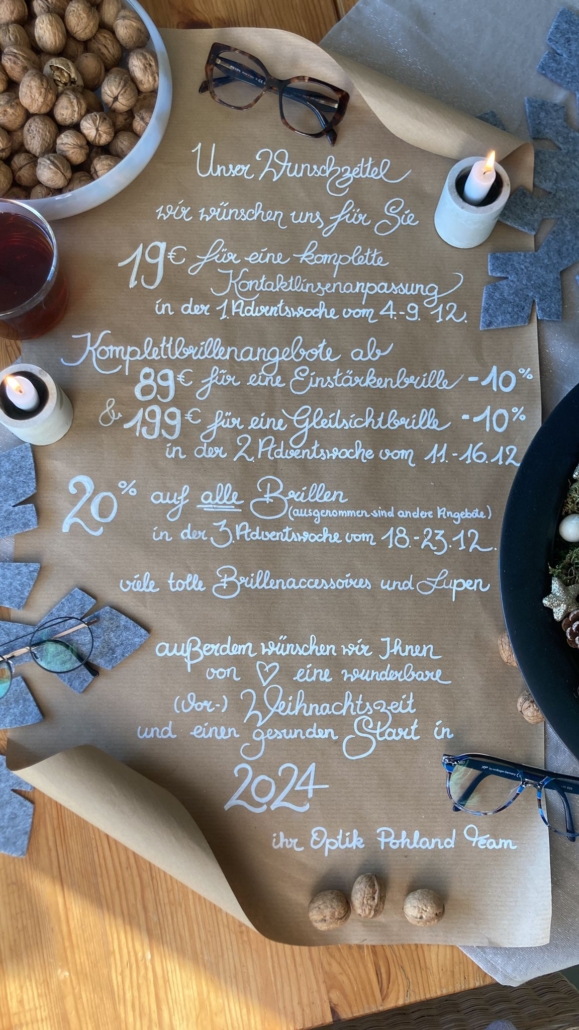 Unser Wunschzettel
wir wünschen uns für Sie
19€ für eine komplette
Kontaktlinsenanpassung
in der 1. Adventswoche vom 4.-9. 12.
Komplettbrillenangebote ab
89€ für eine Einstärkenbrille -10%
& 199€ für eine Gleitsichtbrille -10%
in der 2. Adventswoche vom 11.-16.12
20% auf alle Brillen
(ausgenommen sind andere Angebote)
in der 3. Adventswoche vom 18.-23.12.
viele tolle Brillenaccessoires und Lupen
außerdem wünschen wir Ihnen
von ♡ eine wunderbare
(Vor-) Weihnachtszeit
und einen gesunden Start in
2024
ihr Optik Pohland Team